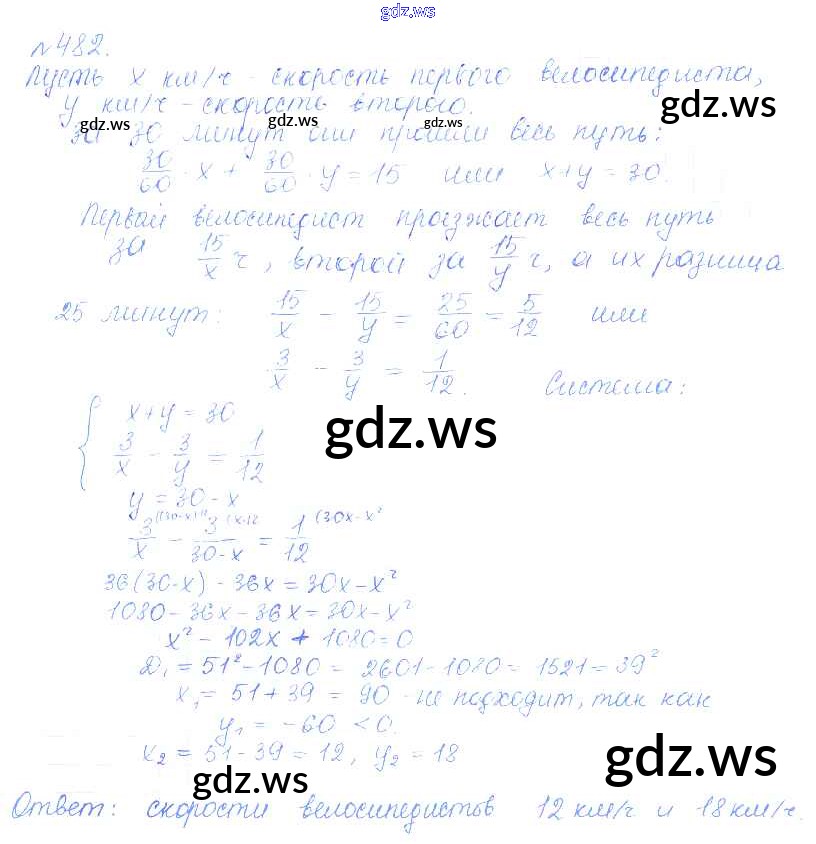 gdz.ws
№482.
Пусть x км/ч - скорость первого велосипедиста,
y км/ч - скорость второго.
gdz.ws
gdz.ws gdz.ws gdz.ws
За 30 минут они прошли весь путь:
30/60 · x + 30/60 · y = 15 или x+y = 30.
Первый велосипедист проезжает весь путь
за 15/x ч, второй за 15/y ч, а их разница
25 минут: 15/x - 15/y = 25/60 = 5/12 или
3/x - 3/y = 1/12. Система:
{ x+y = 30
gdz.ws
3/x - 3/y = 1/12
y = 30-x
3/x - 3/30-x = 1/12 (30x-x²
36(30-x) - 36x = 30x-x²
1080-36x-36x = 30x-x²
x² - 102x + 1080=0
D₁ = 51²-1080 = 2601-1080 = 1521 = 39²
x₁ = 51+39 = 90 - не подходит, так как
y₁ = -60 < 0.
x₂ = 51-39 = 12, y₂ = 18
gdz.ws gdz.ws
Ответ: скорости велосипедистов 12 км/ч и 18 км/ч.